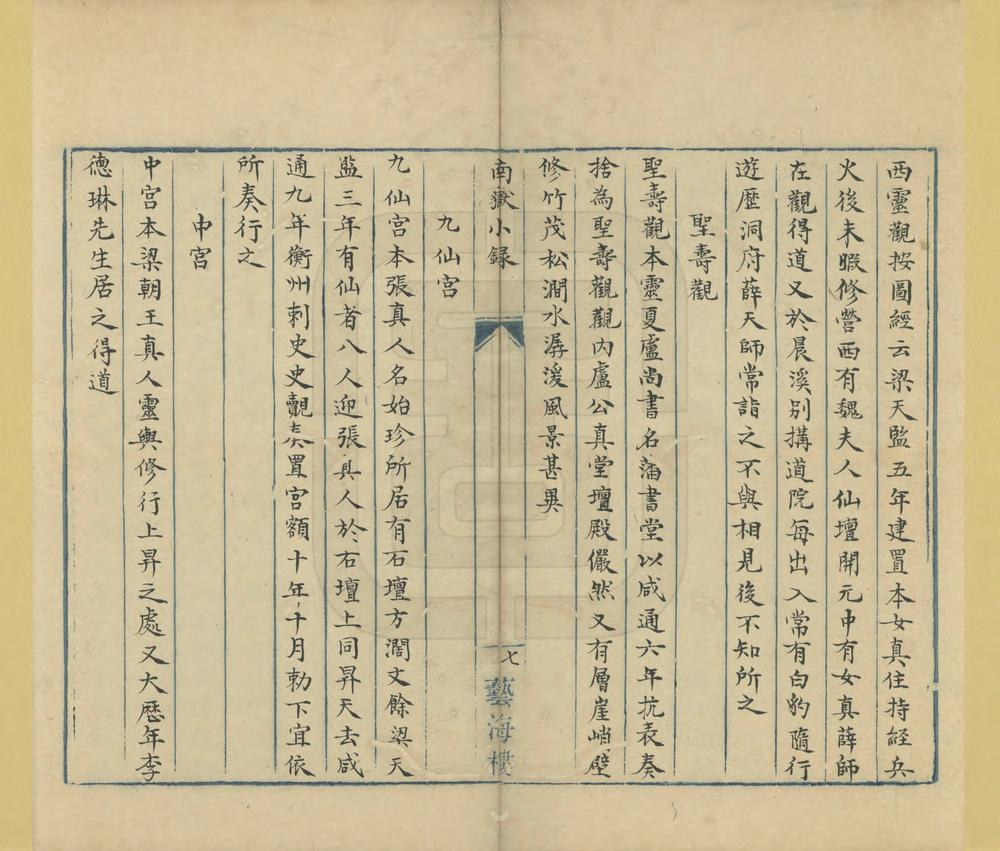 西靈觀按圖經云梁天監五年建置本女真住持經兵
火後未暇修營西有魏夫人仙壇開元中有女真薛師
在觀得道又於晨溪别搆道院每出入常有白豹隨行
遊歷洞府薛天師常詣之不與相見後不知所之
聖壽觀
聖壽觀本靈夏盧尚書名藩書堂以咸通六年抗表奏
捨為聖壽觀觀内盧公真堂壇殿儼然又有層崖峭壁
修竹茂松澗水潺湲風景甚異
南嶽小録
七
藝海樓
九仙宮
九仙宮本張真人名始珍所居有石壇方濶丈餘梁天
監三年有仙者八人迎張真人於石壇上同昇天去咸
通九年衡州刺史史覿奏置宮額十年十月勅下宜依
所奏行之
中宮
中宮本梁朝王真人靈輿修行上昇之處又大歷年李
德琳先生居之得道